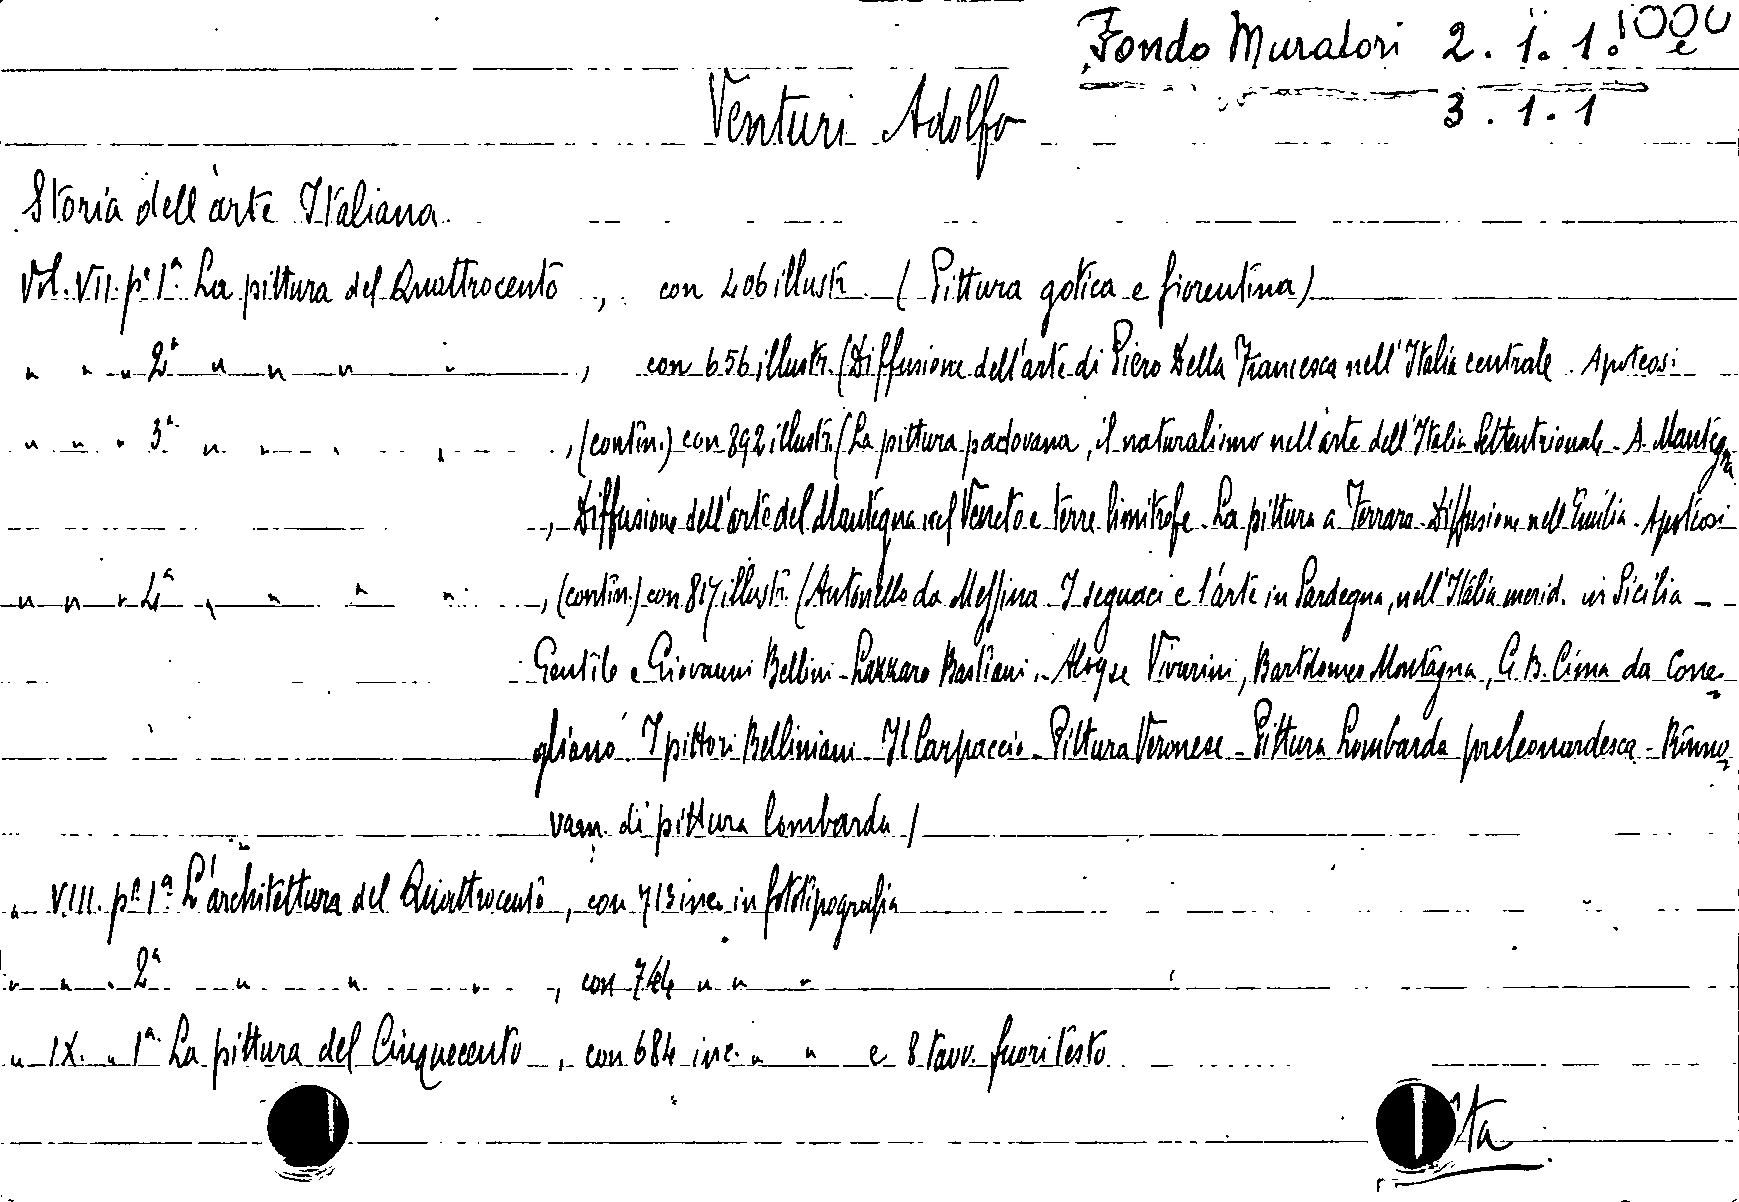 Fondo Muratori 2. 1. 1. 1000 e
3. 1. 1
Venturi Adolfo
Storia dell'arte Italiana
Vol. VII. pe 1ª. La pittura del Quattrocento, con 406 illustr. (Pittura gotica e fiorentina)
" " " 2ª " " " ", con 656 illustr. (Diffusione dell'arte di Piero Della Francesca nell'Italia centrale. Apoteosi
" " " 3ª " " " ", (contin.) con 892 illustr. (La pittura padovana, il naturalismo nell'arte dell'Italia Settentrionale - A. Mantegna
, Diffusione dell'arte del Mantegna nel Veneto e terre limitrofe - La pittura a Ferrara - Diffusione nell'Emilia - Apoteosi
" " " 4ª " " " ", (contin.) con 817 illustr. (Antonello da Messina - I seguaci e l'arte in Sardegna, nell'Italia merid. in Sicilia -
Gentile e Giovanni Bellini - Lazzaro Bastiani - Aloyse Vivarini, Bartolomeo Montagna, G. B. Cima da Cone-
gliano I pittori Belliniani - Il Carpaccio - Pittura Veronese - Pittura Lombarda preleonardesca - Rinno-
vam. di pittura lombarda)
" VIII. pe 1ª L'architettura del Quattrocento, con 713 inc. in fototipografia
" " " 2ª " " ", con 744 " " "
" IX. " 1ª La pittura del Cinquecento, con 684 inc. " " e 8 tavv. fuori testo